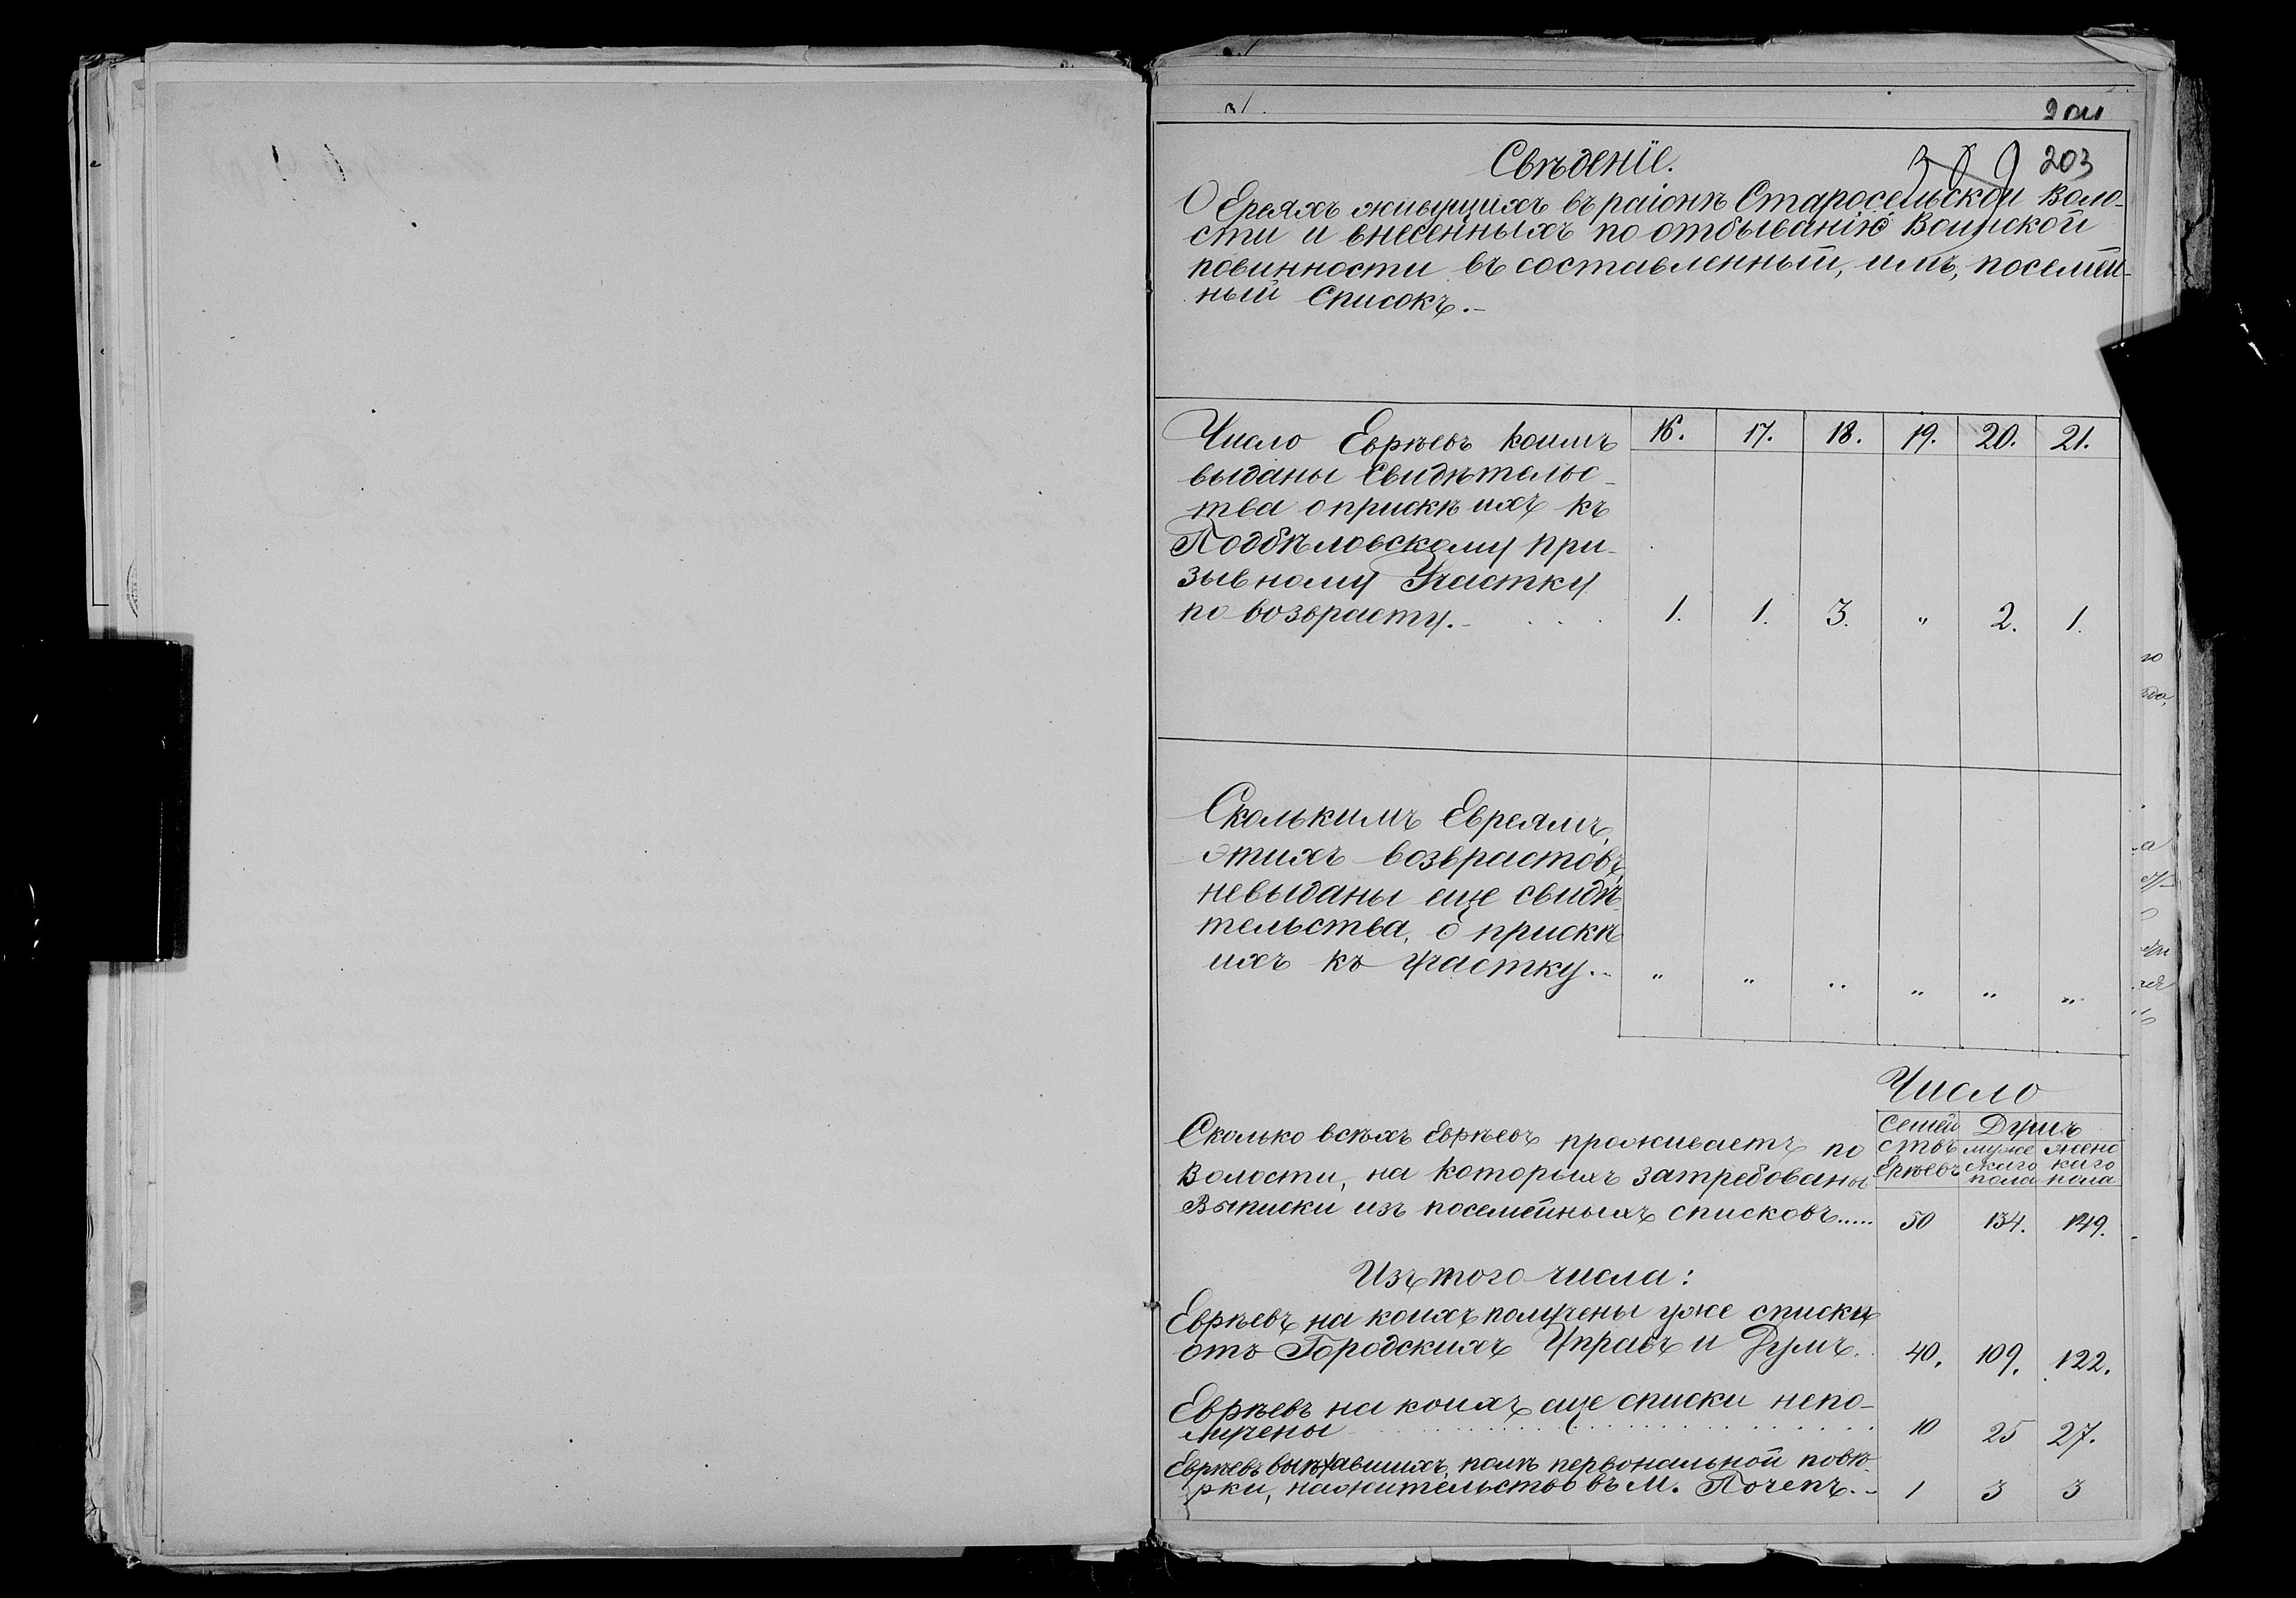 204
Свѣденіе. 389 203
О Ереяхъ живущихъ въ раіонѣ Старосельской Воло-
сти и внесенныхъ по отбыванію Воинской
повинности въ составленный, имъ, посемей-
ный Списокъ.-
Число Еврѣевъ коимъ 16. 17. 18. 19. 20. 21.
выданы Свидѣтельс-
тва о припискѣ ихъ къ
Подбѣловскому при-
зывному Участку
по возврасту.- . . . 1. 1. 3. „ 2. 1.
Сколькимъ Евреямъ,
этихъ возврастовъ,
невыданы еще свидѣ-
тельства, о прискѣ
ихъ къ участку.- „ „ „ „ „ „
Число
Семей Душъ
Сколько всѣхъ Еврѣевъ проживаетъ по ствъ муже женс
Волости, на которыхъ затребованы Ерѣевъ скаго каго
пола пола
Выписки изъ посемейныхъ списковъ..... 50 134. 149.
Изъ того числа:
Еврѣевъ на коихъ получены уже списки
отъ Городскихъ Управъ и Думъ. 40. 109. 122.
Еврѣевъ на коихъ еще списки непо-
лучены 10 25 27.
Еврѣевъ выѣхавшихъ, полѣ первональной повѣ-
рки, нажительство въ М. Почепъ.- 1 3 3